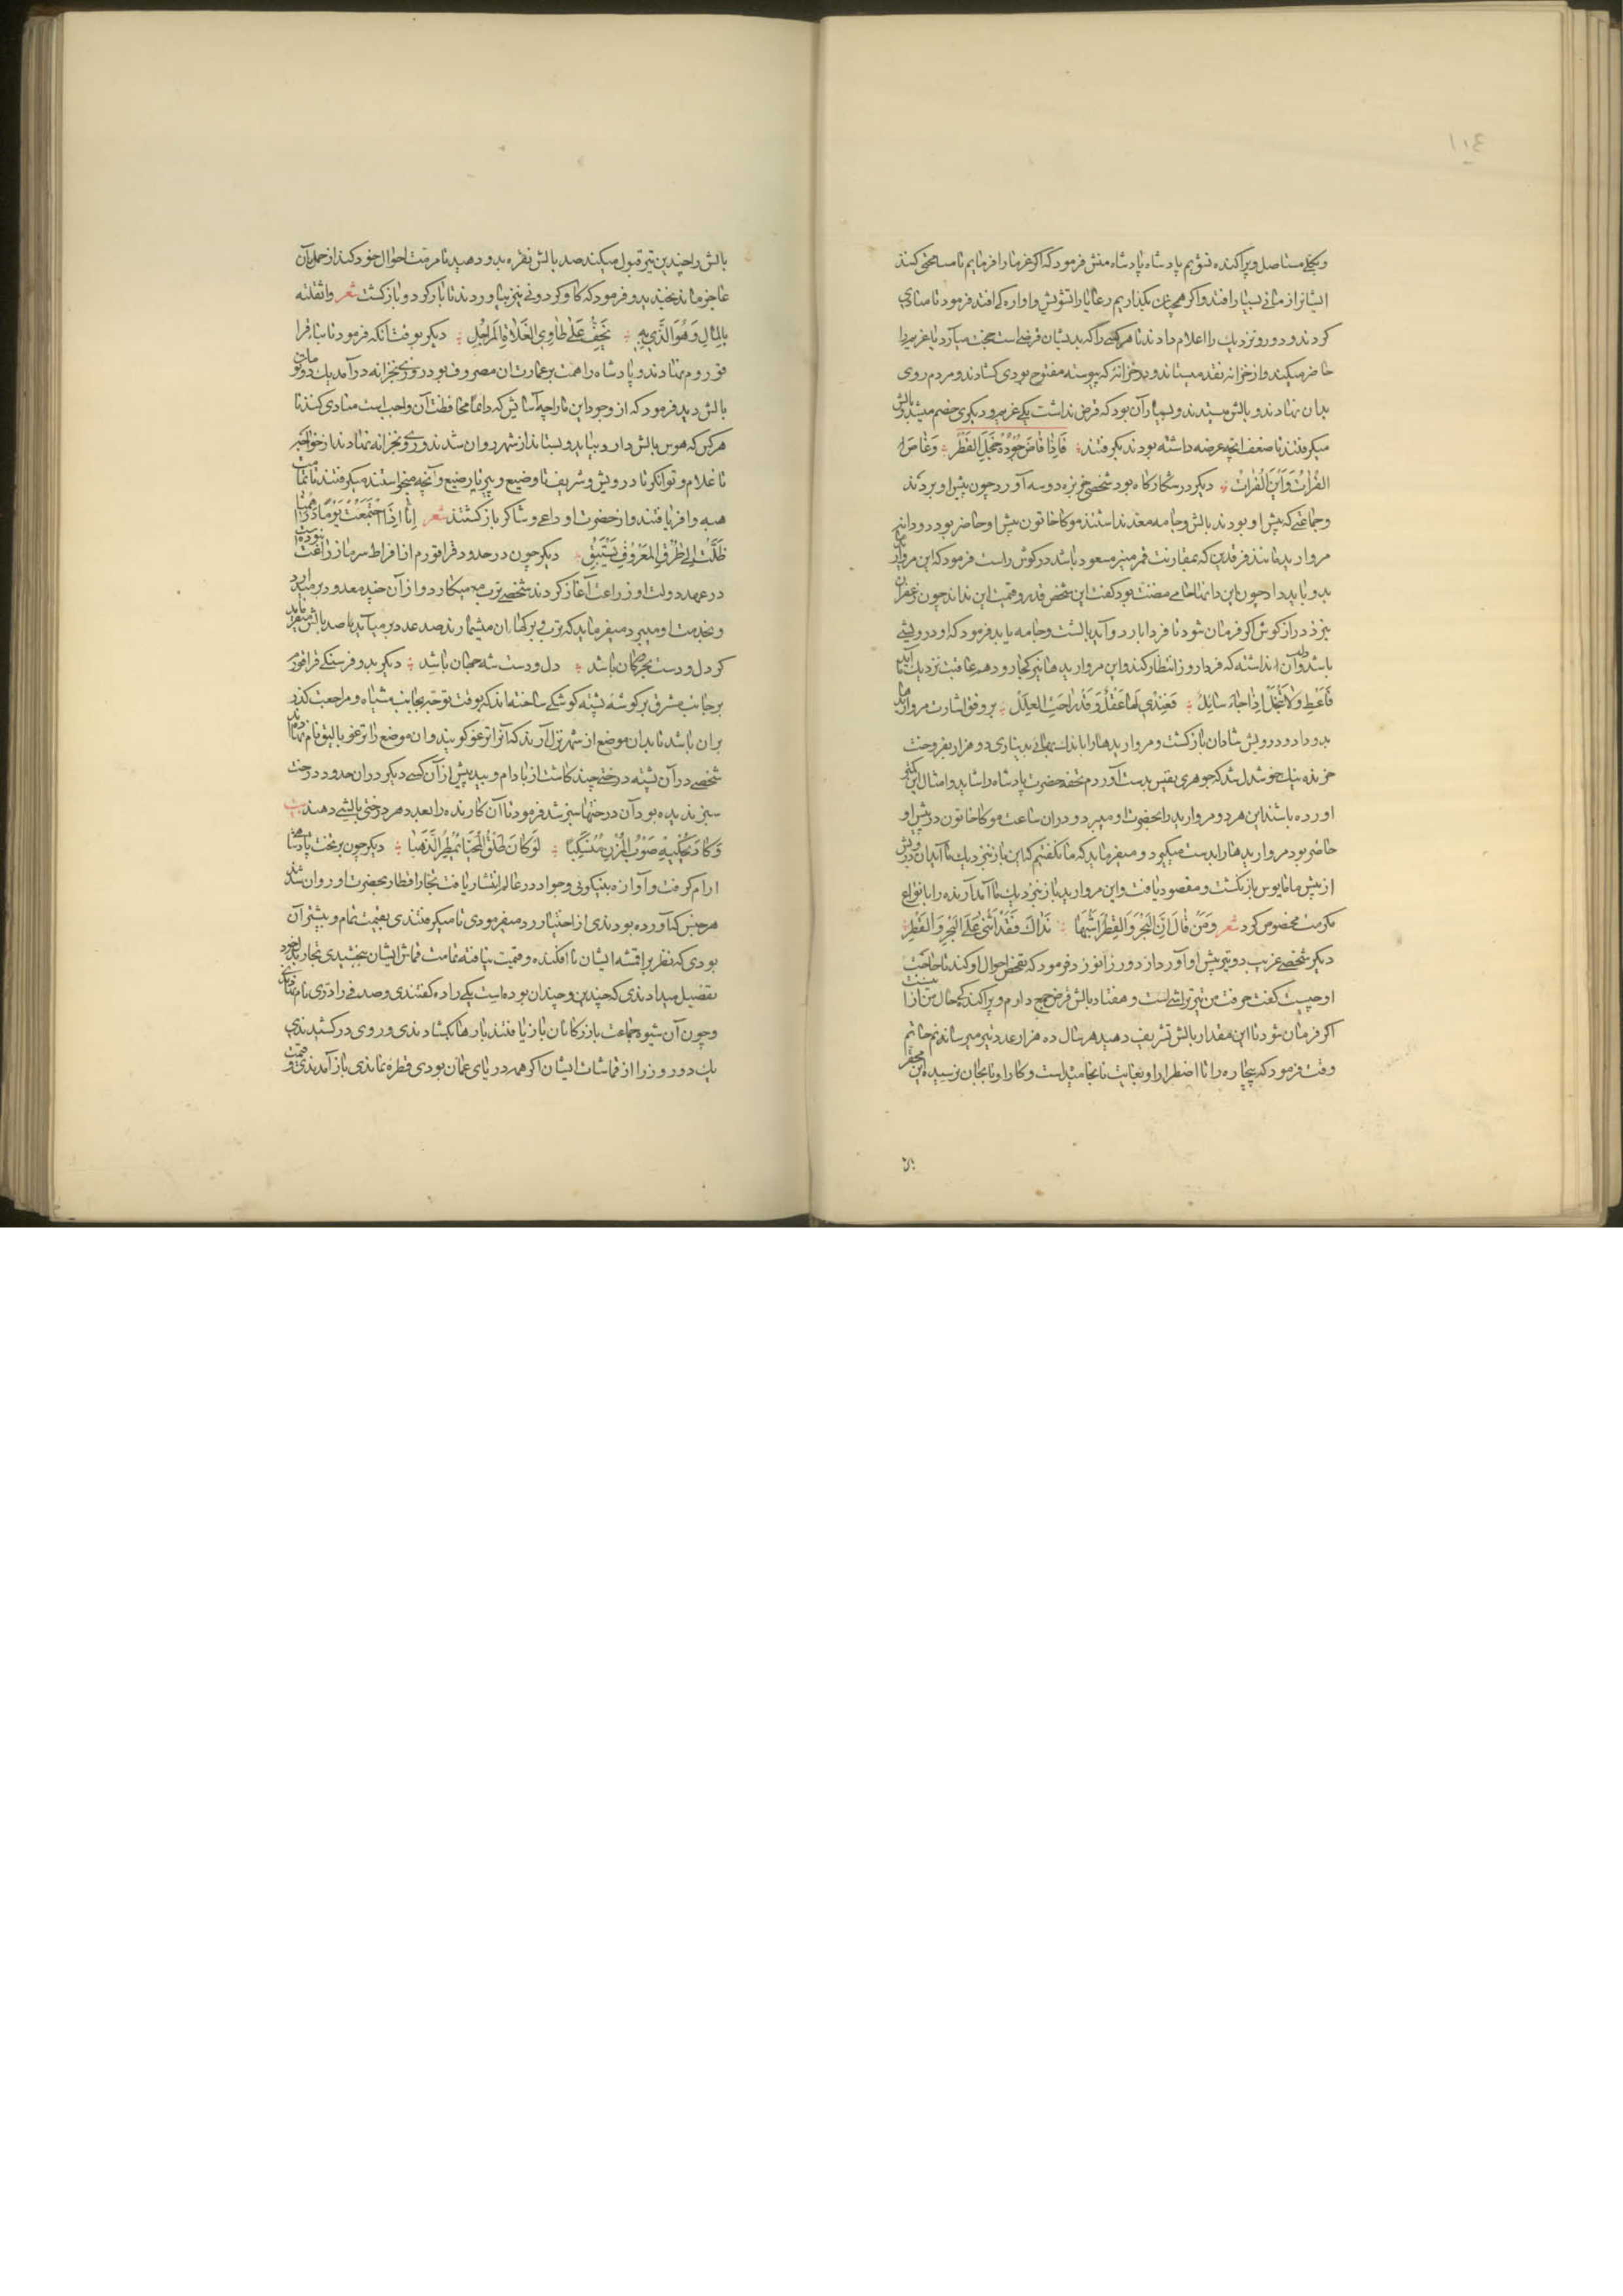 ١٠٤
وبکلی مستاصل وپراکنده نشویم پادشاه پادشاه منش فرمود که اکر غرما را فرماییم تا مسامحتی کنند
ایشانرا زیانی بسیار افتد واکر همچنان بکذاریم رعایا را تشویش واواره کی افتد فرمود تا منادی
کردند و دور و نزدیک را اعلام دادند تا هرکس را که بدیشان قرضی است حجت میآرد یا غریم را
حاضر میکند و از خزانه نقد میستاند و در خزانه که پیوسته مفتوح بودی کشادند و مردم روی
بدان نهادند و بالش میستدند و بسیار آن بود که قرض نداشت یکی غریم و دیکری خصم میشد و بالش
میکرفتند تا ضعف آنچه عرضه داشته بودند بکرفتند فَاِذَا فَاضَ جُوْدُهُ خَجِلَ القَطْر وَغَاصَ
الفُرَاتُ وَابْنُ الْفُرَاتْ دیکر در شکارکاه بود شخصی خربزه دو سه آورد چون پیش او بردند
وجماعتی که پیش او بودند بالش وجامه معد نداشتند موکا خاتون پیش او حاضر بود دو دانه
مروارید مانند فرقدین که بمقارنت قمر منیر مسعود باشد در کوش راست فرمود که این مروارید
بدو باید داد چون این دانها جای مضنت بود کفت این شخص قدر و قیمت این نداند چون زعفران
بنزد دراز کوش اکر فرمان شود تا فردا باردو آید بالشت و جامه یابد فرمود که او درویشی
باشد و دل آن نداشته که فردا روز انتظار کند و این مروارید ها نیز کجا رود هم عاقبت نزدیک ما آید
فَاَعْطِ وَلَا تَبْخَلْ اِذَا جَاءَ سَائِلٌ فَعِنْدِي لَهَا عُقْلٌ وَقَدْ رَاحَتِ العِلَلْ بر وفق اشارت مروارید ها
بدو داد و درویش شادان بازکشت و مروارید ها را باندک بهائی بدیناری دو هزار بفروخت
خرنده نیک خوشدل شد که جوهری نفیس بدست آوردم تحفه حضرت پادشاه را شاید و امثال این کمتر
اورده باشند این هر دو مروارید را بحضرت او میبرد و دران ساعت موکا خاتون در پیش او
حاضر بود مروارید ها را بدست میکیرد و میفرماید که ما نکفتیم که این باز نزدیک ما آید آن درویش
از پیش ما مایوس بازنکشت و مقصود یافت و این مروارید باز نزدیک ما آمد آرنده را بانواع
مکرمت مخصوص کرد شعر وَمَنْ قَالَ اِنَّ الْبَحْرَ وَالْقَطْرَ اشْبَهَا نَدَاكَ فَقَدْ اَثْنٰی عَلَی الْبَحْرِ وَالْقَطْرِ
دیکر شخصی غریب دو تیر پیش او آورد از دور زانو زد فرمود که تفحص احوال او کنند تا حاجت
او چیست کفت حرفت من تیرتراشی است و هفتاد بالش قرض جمع دارم و پراکندکی حال من از اینست
اکر فرمان شود تا این مقدار بالش تشریف دهید هر سال ده هزار عدد تیر میرسانم حاتم
وقت فرمود که بیچاره را تا اضطرار او بغایت نانجامیدست و کار او تا بجان نرسیده این محقر
بالش را چندین تیر قبول میکند صد بالش نقره بدو دهید تا مرمت احوال خود کند از حمل آن
عاجز ماند بخندید و فرمود که کاو کردونی نیز بیاوردند تا بار کرد و بازکشت شعر واثقلته
بِالْمَالِ وَهُوَ الَّذِي بِهِ تَخِفُّ عَلٰی طَاوِي الفَلَاةِ الْمَرَاحِلُ دیکر بوقت آنکه فرمود تا بناء قرا
قوروم نهادند و پادشاه را همت بر عمارت آن مصروف بود روزی بخزانه درآمد یک دو تومان
بالش دید فرمود که از وجود این ما را چه آسایش که دائما محافظت آن واجب است منادی کنند تا
هرکس که هوس بالش دارد بیاید و بستاند از شهر روان شدند و روی بخزانه نهادند از خواجه
تا غلام و توانکر تا درویش و شریف تا وضیع و پیر تا رضیع و آنچه میخواستند میکرفتند تا تمامت
هبه وافر یافتند و از حضرت او داعی و شاکر بازکشتند شعر اِنَّا اِذَا اجْتَمَعَتْ یَوْمًا دَرَاهِمُنَا
ظَلَّتْ اِلٰی طُرُقِ الْمَعْرُوْفِ تَسْتَبِقُ دیکر چون در حدود قراقورم از افراط سرما زراعت نبوده
در عهد دولت او زراعت آغاز کردند شخصی ترب میکارد و از آن چند معدود برمیآید
و بخدمت او میبرد میفرماید که ترب و برکهای آن میشمارند صد عدد برمیآید یا صد بالش میفرماید
کر دل و دست بحر و کان باشد دل و دست شه جهان باشد دیکر بدو فرسنکی قراقورم
بر جانب مشرق بر کوشه پشته کوشکی ساخته اند که بوقت توجه بجانب مشتاه و مراجعت کذر
بران باشد تا بدان موضع از شهر نزل آرند که آنرا ترغو کویند و ان موضع را ترغو بالیق نام نهاده اند
شخصی در آن پشته درختی چند کاشت از بادام و بید پیش از آن کسی دیکر دران حدود درخت
سبز ندیده بود آن درختها سبز شد فرمود تا آن کارنده را بعدد هر درختی بالشی دهند بیت
وَكَادَ یَحْكِیْهِ صَوْبُ الْمُزْنِ مُنْسَكِبًا لَوْ كَانَ طَلْقَ الْمُحَیَّا یُمْطِرُ الذَّهَبَا دیکر چون بر تخت پادشاهی
ارام کرفت و آوازه بنیکوئی و جواد در عالم انتشار یافت تجار اقطار بحضرت او روان شدند
هر جنس که آورده بودندی از اختیار و رد میفرمودی تا میکرفتندی بقیمت تمام و بیشتر آن
بودی که نظر بر اقمشه ایشان ناافکنده و قیمت نیافته تمامت قماش ایشان ببخشیدی تجار با خود
تفصیل میدادندی که چندین و چندان بوده است یکی را ده کفتندی و صدفی را دری نام نهادندی
وچون آن شیوه جماعت بازرکانان بازیافتند بارها بکشادندی و روی درکشیدندی
یک دو روز را از قماشات ایشان اکر همه دریای عمان بودی قطره نماندی بازآمدندی و قیمت